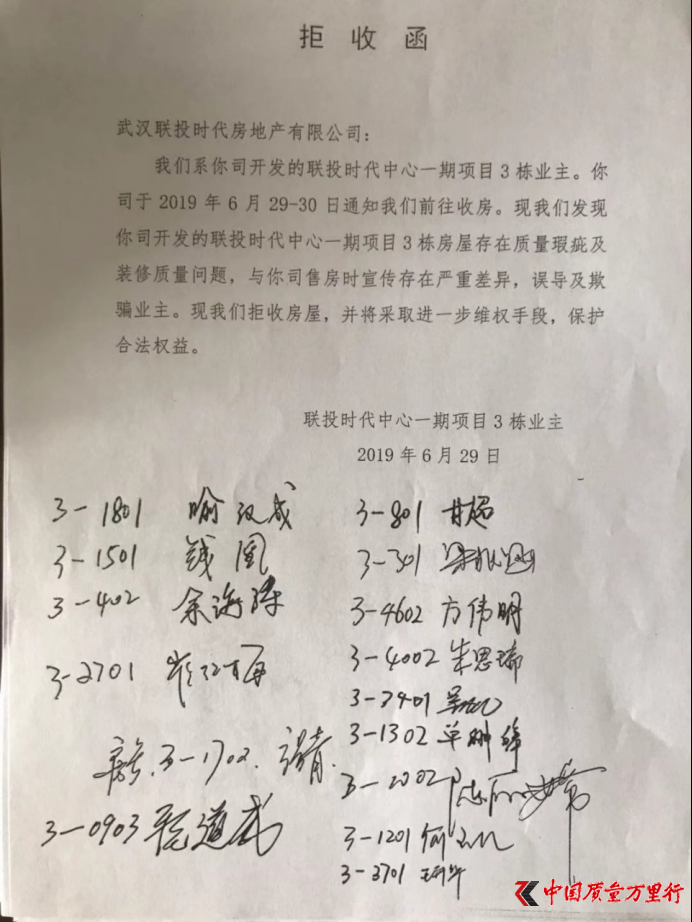 拒收函
武汉联投时代房地产有限公司：
我们系你司开发的联投时代中心一期项目3栋业主。你
司于2019年6月29-30日通知我们前往收房。现我们发现
你司开发的联投时代中心一期项目3栋房屋存在质量瑕疵及
装修质量问题，与你司售房时宣传存在严重差异，误导及欺
骗业主。现我们拒收房屋，并将采取进一步维权手段，保护
合法权益。
联投时代中心一期项目3栋业主
2019年6月29日
3-1801 喻汉成
3-1501 钱凰
3-402 余海
3-2701
3-1702
3-0903 道武
3-801 甘超
3-301
3-4602 方伟明
3-4002 朱思
3-3401 吴
3-1302 单
3-2002
3-1201 何
3-3701
中国质量万里行